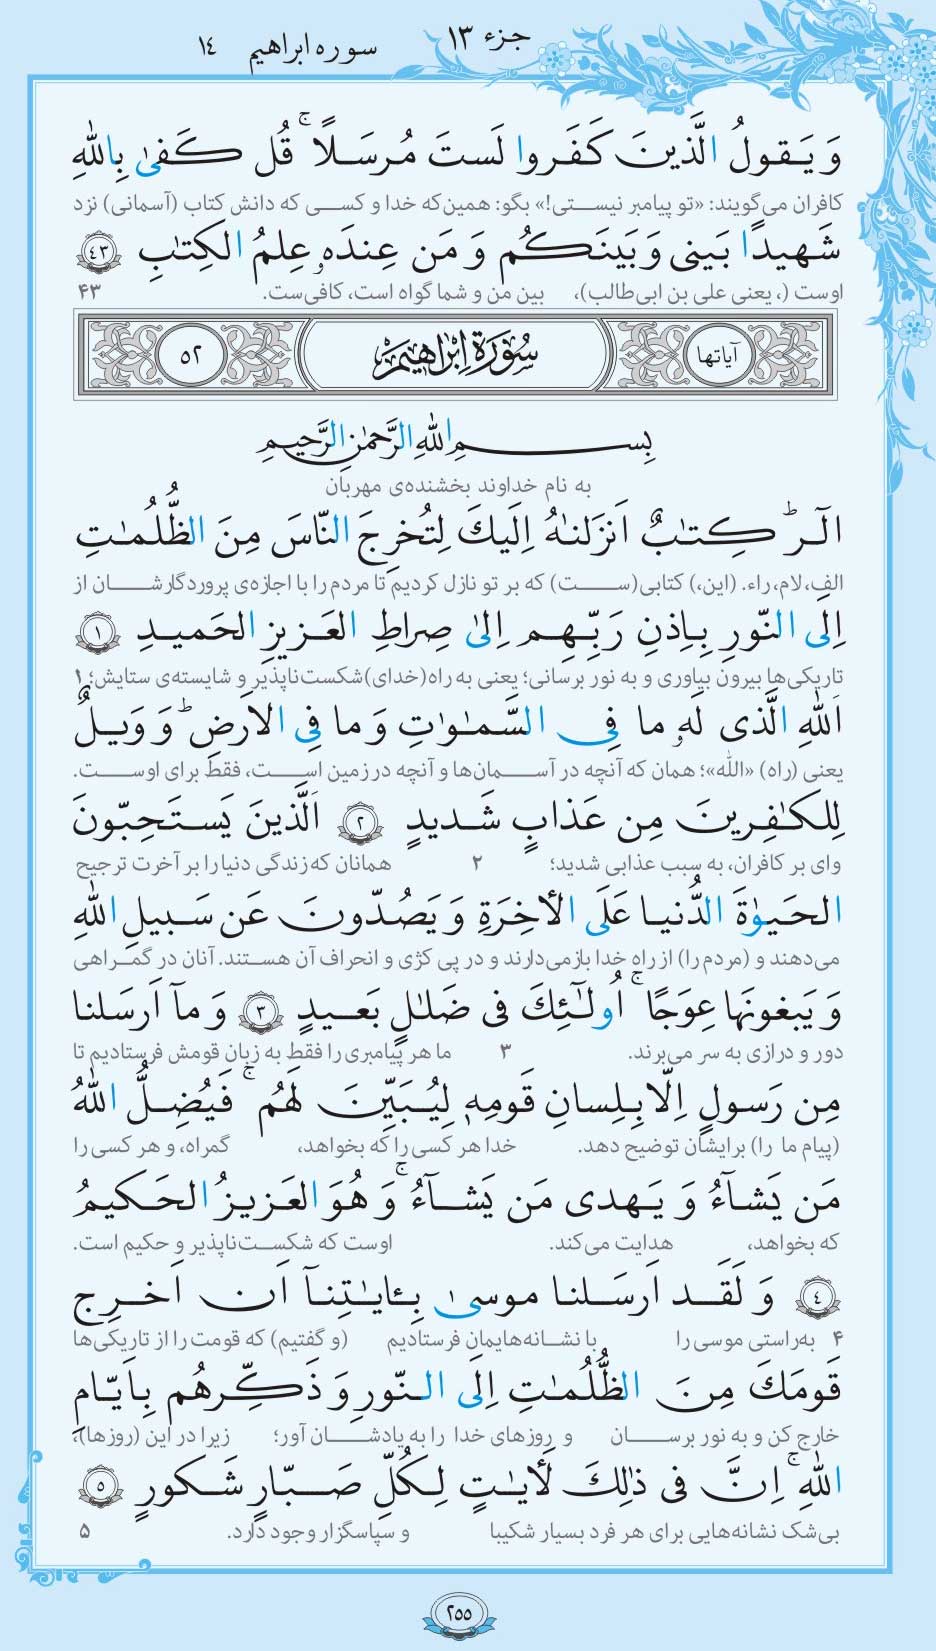 جزء ١٣
سوره ابراهیم ١٤
وَ يَـقولُ الَّذينَ كَفَروا لَستَ مُرسَـلًا ۚ قُل كَـفىٰ بِاللّٰهِ
کافران می‌گویند: «تو پیامبر نیستی!» بگو: همین‌که خدا و کسی که دانش کتاب (آسمانی) نزد
شَهيدًا بَينى وَ بَينَكُم وَ مَن عِندَهٗ عِلمُ الكِتٰبِ ٤٣
اوست (، یعنی علی بن ابی‌طالب)، بین من و شما گواه است، کافی‌ست. ۴۳
آیاتها سُورَة اِبْرَاهِيم ٥٢
بِسـمِ اللّٰهِ الرَّحمٰنِ الرَّحيمِ
به نام خداوند بخشنده‌ی مهربان
الٓـرٰ ۚ كِـتٰبٌ اَنزَلنٰهُ اِلَيكَ لِتُخرِجَ النّاسَ مِنَ الظُّلُمـٰتِ
الف، لام، راء. (این،) کتابی(ست) که بر تو نازل کردیم تا مردم را با اجازه‌ی پروردگارشان از
اِلَى النّورِ بِـاِذنِ رَبِّـهِـم اِلىٰ صِراطِ العَـزيزِ الحَميـدِ ١
تاریکی‌ها بیرون بیاوری و به نور برسانی؛ یعنی به راه (خدای) شکست‌ناپذیر و شایسته‌ی ستایش؛ ۱
اَللّٰهِ الَّذى لَهٗ ما فِى السَّمـٰوٰتِ وَ ما فِى الاَرضِ ۗ وَ وَيلٌ
یعنی (راه) «الله»؛ همان که آنچه در آسمان‌ها و آنچه در زمین است، فقط برای اوست.
لِلكـٰفِرينَ مِن عَذابٍ شَـديدٍ ٢ اَلَّذينَ يَسـتَحِبّونَ
وای بر کافران، به سبب عذابی شدید؛ ۲ همانان که زندگی دنیا را بر آخرت ترجیح
الحَيوٰةَ الدُّنيـا عَلَى الأخِرَةِ وَ يَصُدّونَ عَن سَـبيلِ اللّٰهِ
می‌دهند و (مردم را) از راه خدا بازمی‌دارند و در پی کژی و انحراف آن هستند. آنان در گمراهی
وَ يَبغونَها عِوَجًا ۚ اُولـٰٓئِكَ فى ضَلـٰلٍ بَعـيدٍ ٣ وَ مآ اَرسَلنا
دور و درازی به سر می‌برند. ۳ ما هر پیامبری را فقط به زبان قومش فرستادیم تا
مِن رَسولٍ اِلّا بِـلِسانِ قَومِهٖ لِيُـبَيِّنَ لَهُم ۖ فَيُضِـلُّ اللّٰهُ
(پیام ما را) برایشان توضیح دهد. خدا هر کسی را که بخواهد، گمراه، و هر کسی را
مَن يَشآءُ وَ يَـهدى مَن يَشـآءُ ۚ وَ هُوَ العَزيزُ الحَـكيمُ
که بخواهد، هدایت می‌کند. اوست که شکست‌ناپذیر و حکیم است.
٤ وَ لَقَـد اَرسَـلنا موسىٰ بِـئايـٰتِنـآ اَن اَخـرِج
۴ به‌راستی موسی را با نشانه‌هایمان فرستادیم (و گفتیم) که قومت را از تاریکی‌ها
قَومَكَ مِنَ الظُّلُمـٰتِ اِلَى النّورِ وَ ذَكِّـرهُم بِـاَيّـامِ
خارج کن و به نور برسان و روزهای خدا را به یادشان آور؛ زیرا در این (روزها)،
اللّٰهِ ۚ اِنَّ فى ذٰلِكَ لَأَيـٰتٍ لِـكُلِّ صَـبّارٍ شَـكورٍ ٥
بی‌شک نشانه‌هایی برای هر فرد بسیار شکیبا و سپاسگزار وجود دارد. ۵
٢٥٥